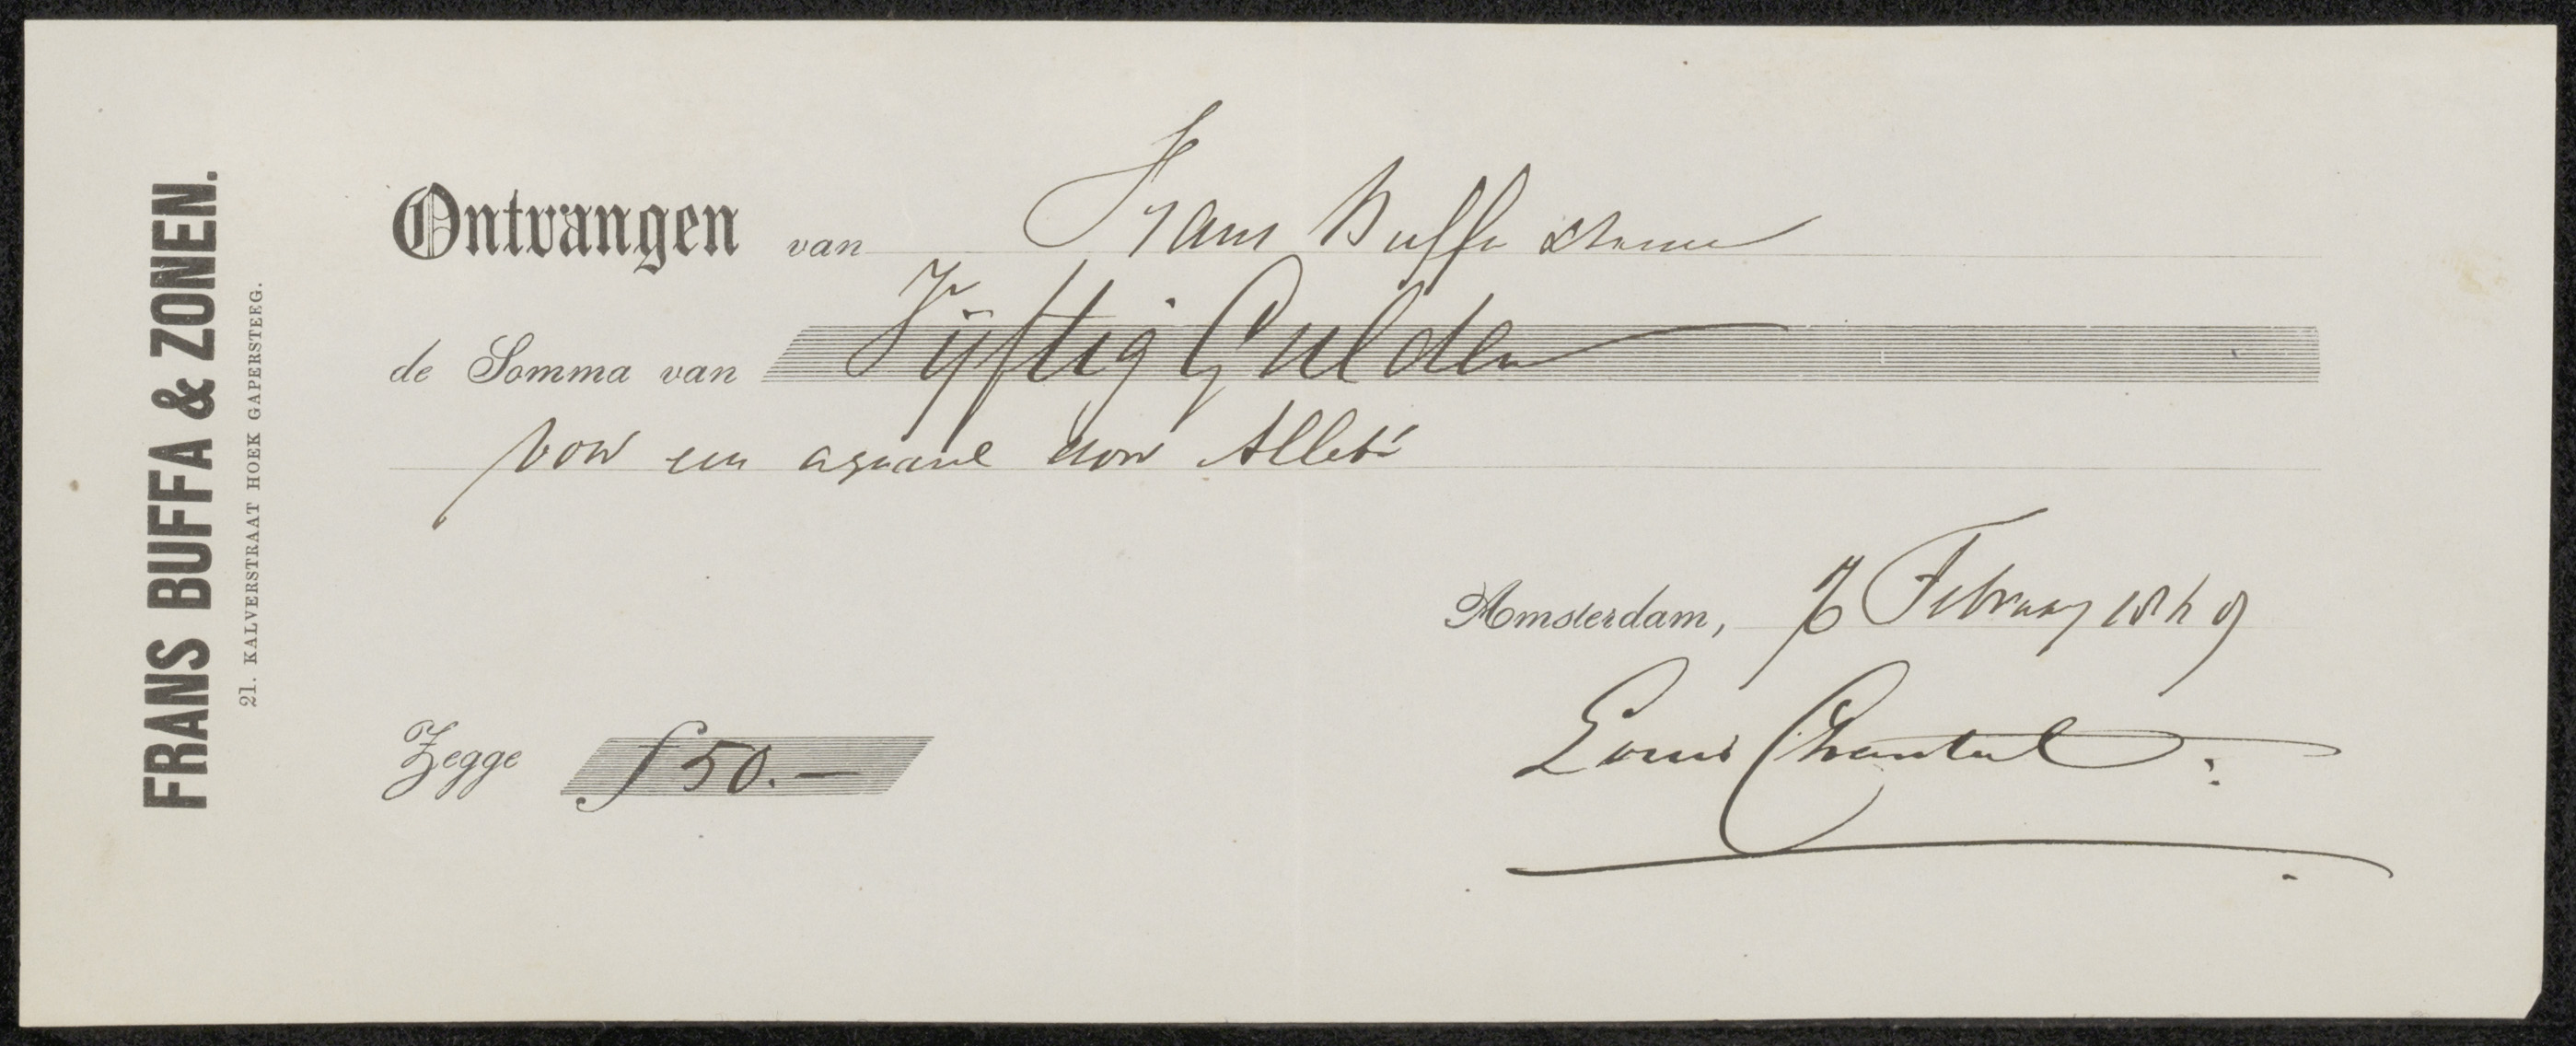 FRANS BUFFA & ZONEN.
21. KALVERSTRAAT HOEK GAPERSTEEG.
Ontvangen van Frans Buffa & Zonen
de Somma van Vijftig Gulden
voor een aquarel van Allebé
Amsterdam, 7 February
Louis Chantal
Zegge f 50.—